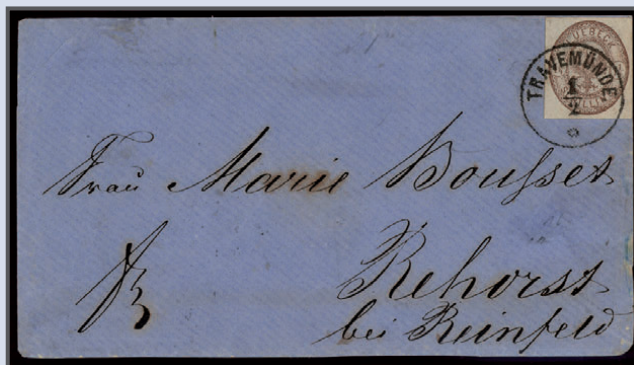 LUEBECK
TRAVEMÜNDE
1
2
Frau Marie Bousset
Rehorst
bei Reinfeld